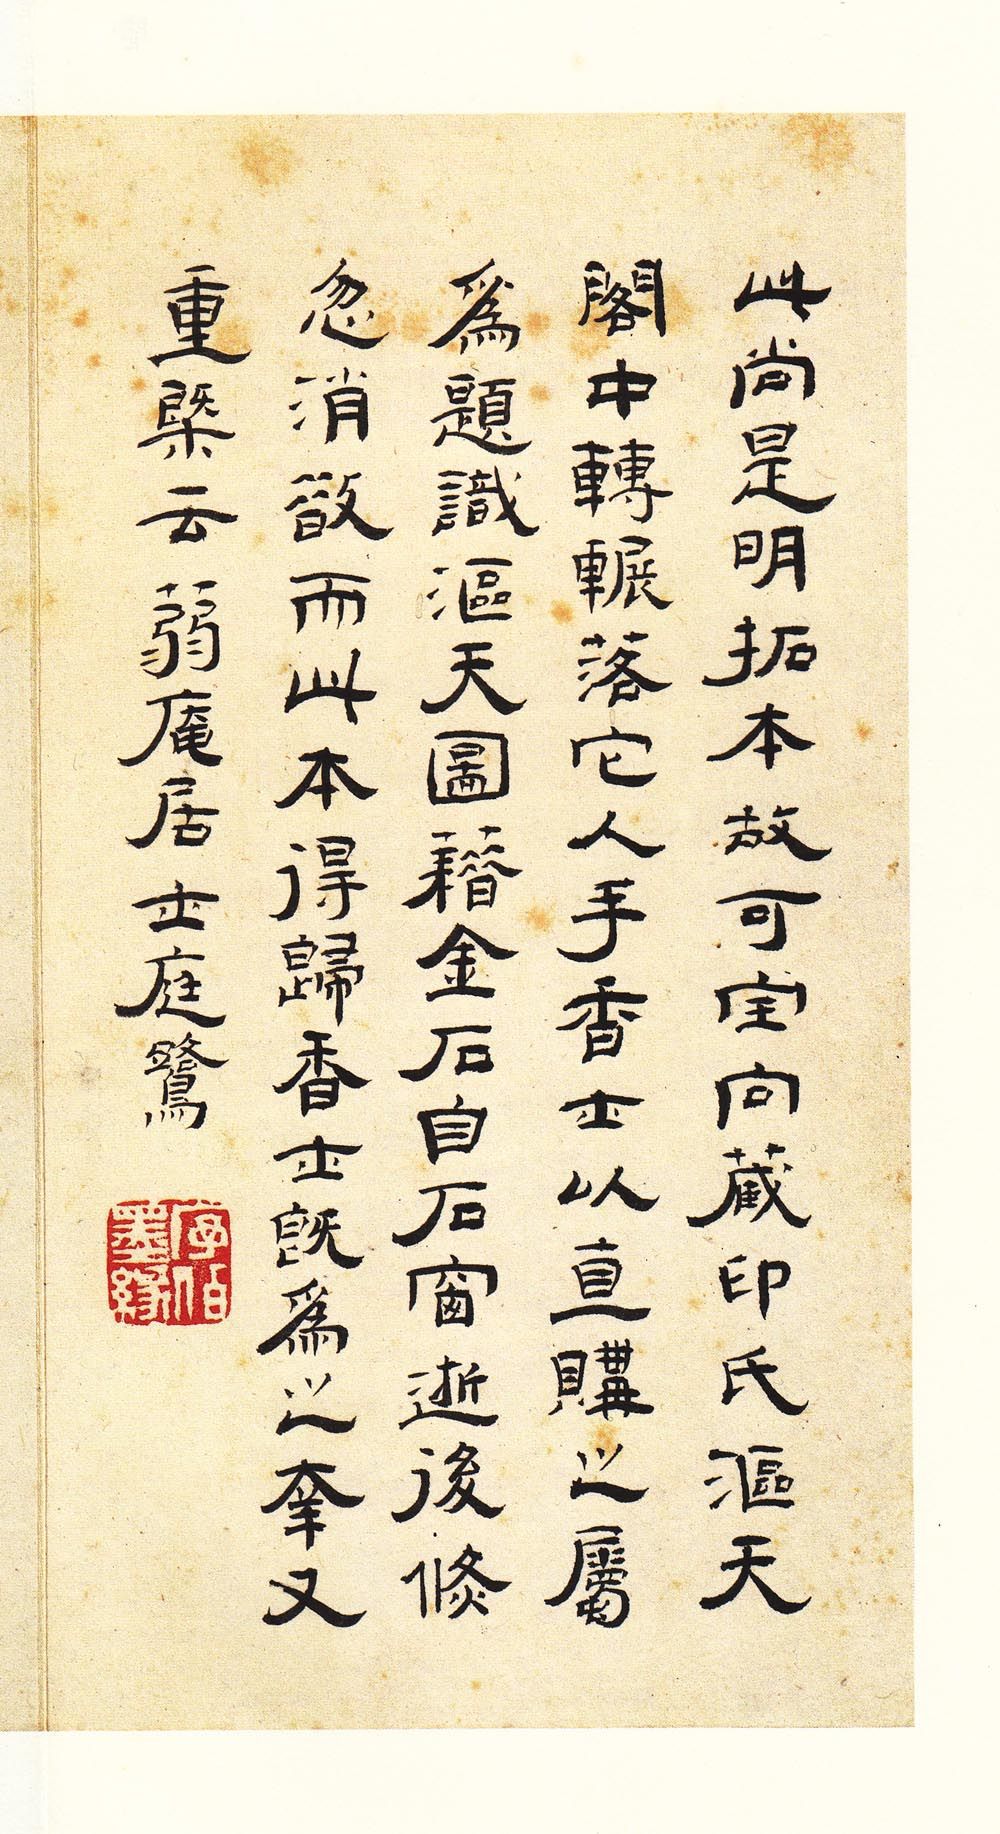 此尚是明拓本故可宝向藏印氏漚天
閣中轉輾落它人手香士以直購之屬
為題識漚天圖藉金石自石窗逝後倏
忽消散而此本得歸香士既為之幸又
重槩云蒻庵居士庭鷺
序伯墨緣